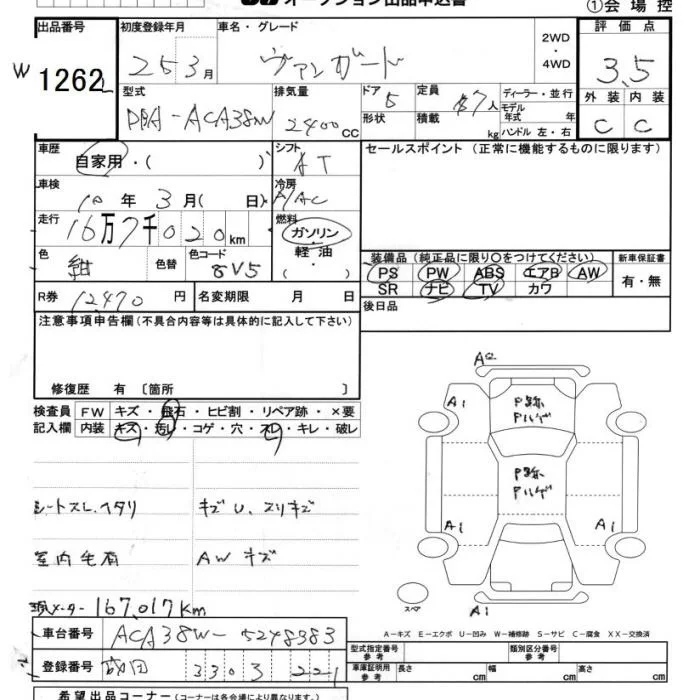 オークション出品申込書
①会場控
出品番号
W 1262
初度登録年月
25 3月
車名・グレード
ヴァンガード
2WD
・
4WD
評価点
3.5
外装 内装
C C
型式
DBA-ACA38W
排気量
2400cc
ドア 5
形状
定員 7人
積載 kg
ディーラー・並行
モデル
年式 年
ハンドル 左・右
車歴
自家用・( )
シフト
AT
セールスポイント（正常に機能するものに限ります）
車検
10年 3月( 日)
冷房
AAC
走行
16万7千020km
燃料
ガソリン
軽油
( ・ )
色
紺
色替
色コード
8V5
装備品（純正品に限り○をつけてください）
PS PW ABS エアB AW
SR ナビ TV カワ
新車保証書
有・無
R券 12,470円
名変期限 月 日
後日品
注意事項申告欄（不具合内容等は具体的に記入して下さい）
修復歴 有〔箇所 〕
検査員 FW キズ・飛石・ヒビ割・リペア跡・×要
記入欄 内装 キズ・汚レ・コゲ・穴・スレ・キレ・破レ
シートスレ、ヘタリ
キズU、スリキズ
室内毛有
AWキズ
現メーター 167,017Km
A1
P跡
Pハゲ
A1
P跡
Pハゲ
A1
A1
スペア
A1
A－キズ E－エクボ U－凹み W－補修跡 S－サビ C－腐食 XX－交換済
車台番号 ACA38W-5248983
登録番号 成田 330 3 221
型式指定番号
参考
類別区分番号
参考
車庫証明用
参考
長さ cm
幅 cm
高さ cm
希望出品コーナー（コーナーは各会場により異なります。）